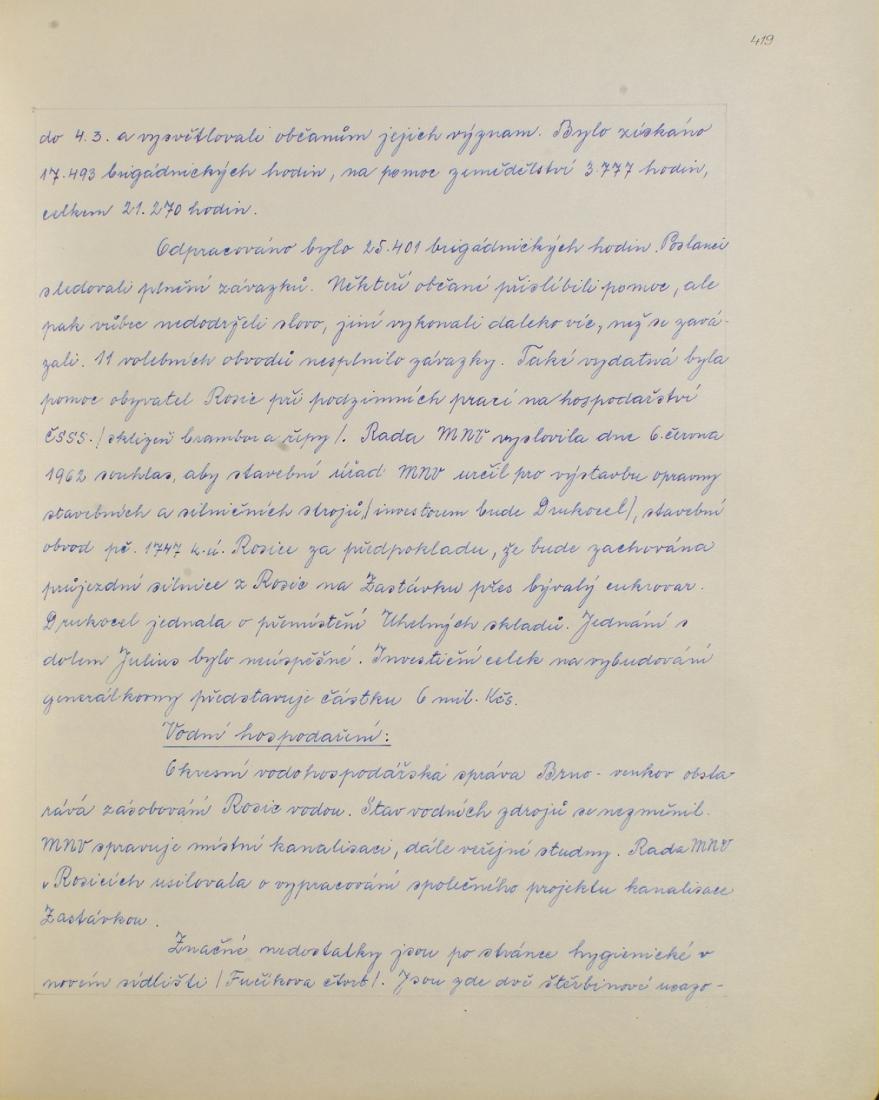 419
do 4.3. a vysvětlovali občanům jejich význam. Bylo získáno
17.493 brigádnických hodin, na pomoc zemědělství 3.777 hodin,
celkem 21.270 hodin.
Odpracováno bylo 25.401 brigádnických hodin. Poslanci
sledovali plnění závazků. Někteří občané přislíbili pomoc, ale
pak vůbec nedodrželi slovo, jiní vykonali daleko víc, než se zavá-
zali. 11 volebních obvodů nesplnilo závazky. Také vydatná byla
pomoc obyvatel Rosic při podzimních prací na hospodářství
ČSSS. /sklizeň brambor a řepy/. Rada MNV vyslovila dne 6. června
1962 souhlas, aby stavební úřad MNV určil pro výstavbu opravny
stavebních a silničních strojů, /investorem bude Drukocel/, stavební
obvod pč. 1747 k.ú. Rosice za předpokladu, že bude zachována
průjezdní silnice z Rosic na Zastávku přes bývalý cukrovar.
Drukocel jednala o přemístění Uhelných skladů. Jednání s
dolem Julius bylo neúspěšné. Investiční celek na vybudování
generálkovny představuje částku 6 mil. Kčs.
Vodní hospodaření:
Okresní vodohospodářská správa Brno-venkov obsta-
rává zásobování Rosic vodou. Stav vodních zdrojů se nezměnil.
MNV spravuje místní kanalisaci, dále veřejné studny. Rada MNV
v Rosicích usilovala o vypracování společného projektu kanalisace
Zastávkou.
Značné nedostatky jsou po stránce hygienické v
novém sídlišti /Fučíkova čtvrť/. Jsou zde dvě štěrbinové usazo-